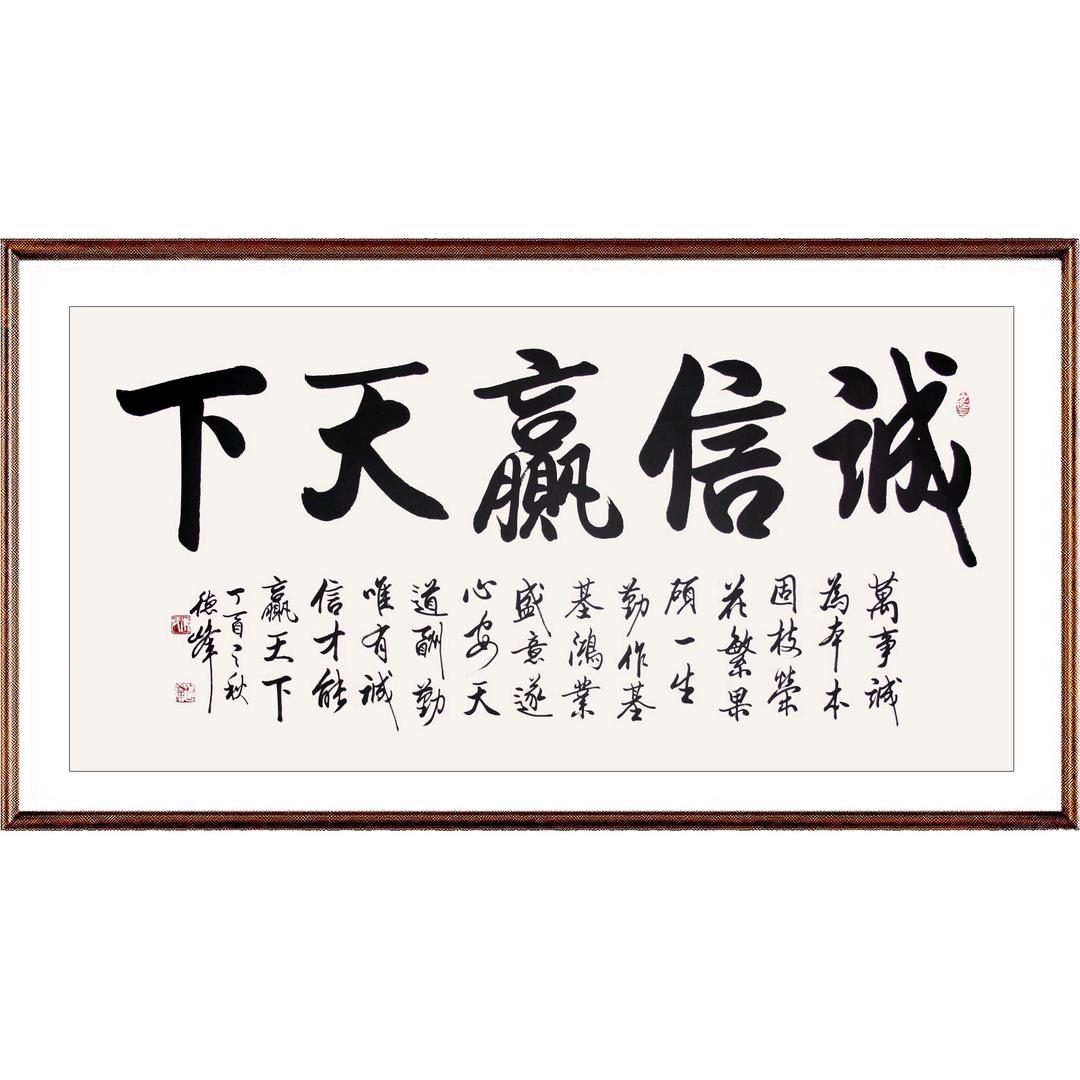 誠信贏天下
萬事誠
為夲本
固枝榮
花繁果
碩一生
勤作基
基鴻業
盛意遂
心安天
道酬勤
唯有誠
信才能
贏天下
丁酉之秋
德峰